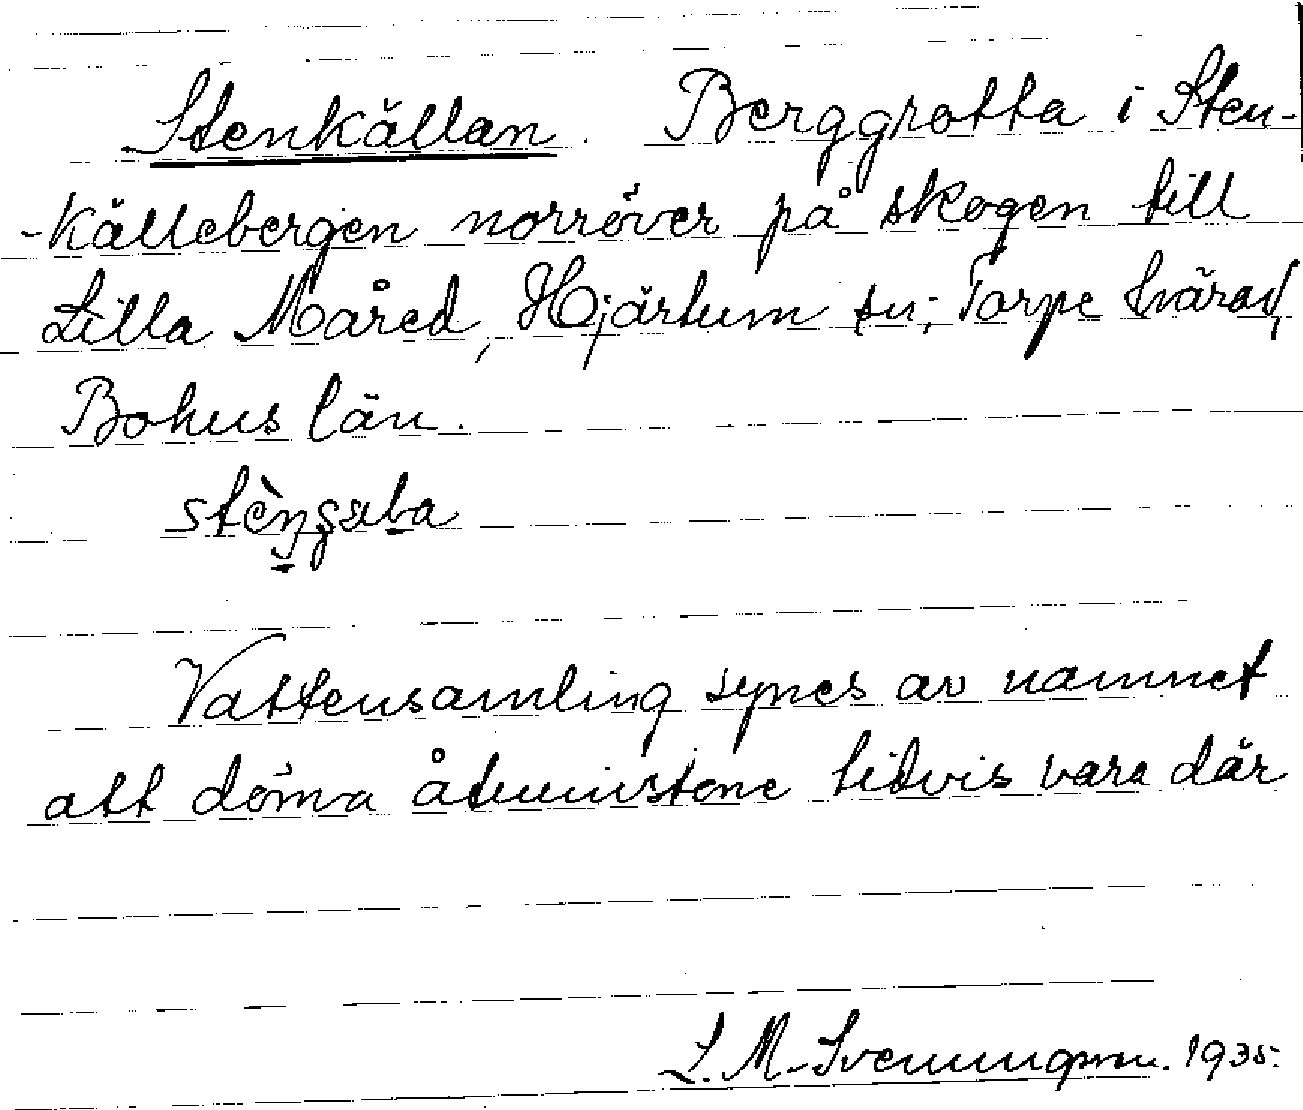 Stenkällan. Berggrotta i Sten-
-källebergen norröver på skogen till
Lilla Måred, Hjärtum sn; Torpe härad,
Bohus län.
Vattensamling synes av namnet
att döma åtminstone tidvis vara där
L. M. Svenungsson. 1935.